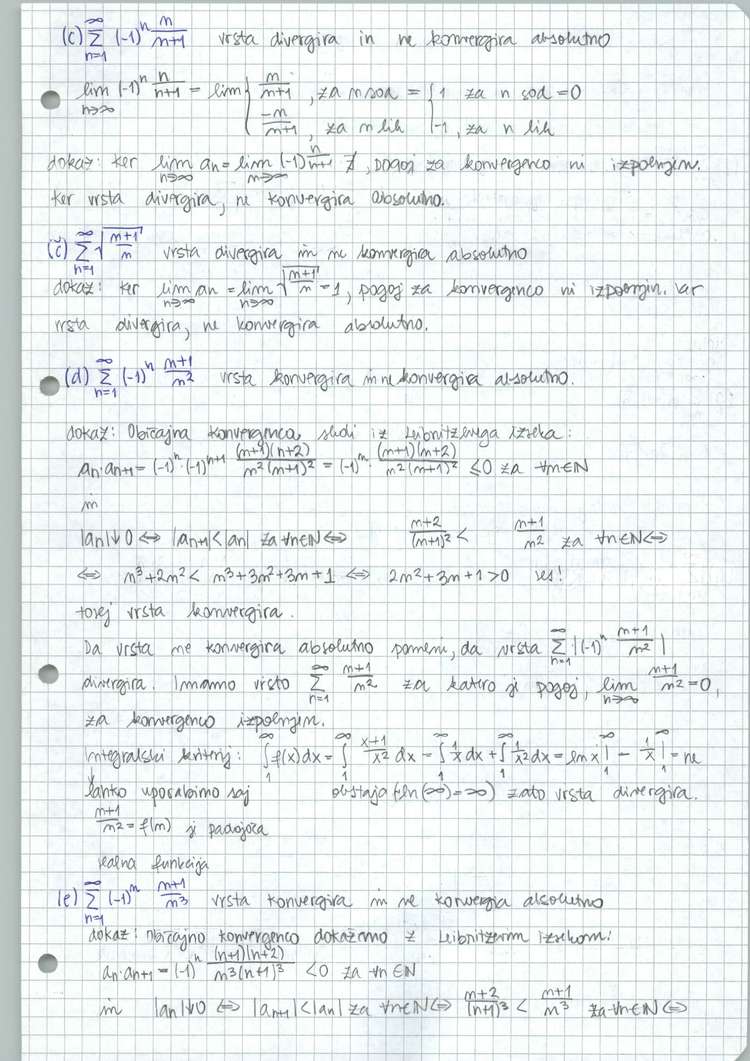 (c) ∑_{n=1}^{∞} (-1)^n n/(n+1) vrsta divergira in ne konvergira absolutno
lim_{n→∞} (-1)^n n/(n+1) = lim { n/(n+1), za n sod; -n/(n+1), za n lih = { 1 za n sod = 0; -1, za n lih
dokaz: ker lim_{n→∞} an = lim_{n→∞} (-1) n/(n+1) ∄, pogoj za konvergenco ni izpolnjen.
Ker vrsta divergira, ne konvergira absolutno.
(č) ∑_{n=1}^{∞} √((n+1)/n) vrsta divergira in ne konvergira absolutno
dokaz: ker lim_{n→∞} an = lim_{n→∞} √((n+1)/n) = 1, pogoj za konvergenco ni izpolnjen. Ker
vrsta divergira, ne konvergira absolutno.
(d) ∑_{n=1}^{∞} (-1)^n (n+1)/n² vrsta konvergira in ne konvergira absolutno.
dokaz: Običajna konvergenca sledi iz Leibnitzovega izreka:
an·an+1 = (-1)^n·(-1)^{n+1} (n+1)(n+2)/(n²(n+1)²) = (-1)^n · (n+1)(n+2)/(n²(n+1)²) ≤0 za ∀n∈N
in
|an|↓0 ⇔ |an+1|<|an| za ∀n∈N ⇔ (n+2)/(n+1)² < (n+1)/n² za ∀n∈N ⇔
⇔ n³+2n² < n³+3n²+3n+1 ⇔ 2n²+3n+1>0 yes!
torej vrsta konvergira.
Da vrsta ne konvergira absolutno pomeni, da vrsta ∑_{n=1}^{∞} |(-1)^n (n+1)/n²|
divergira. Imamo vrsto ∑_{n=1}^{∞} (n+1)/n² za katero je pogoj, lim_{n→∞} (n+1)/n² = 0,
za konvergenco izpolnjen.
Integralski kriterij: ∫_1^∞ f(x)dx = ∫_1^∞ (x+1)/x² dx = ∫_1^∞ 1/x dx + ∫_1^∞ 1/x² dx = ln x|_1^∞ - 1/x|_1^∞ = ne
lahko uporabimo saj obstaja (ln(∞)=∞) zato vrsta divergira.
(n+1)/n² = f(n) je padajoča
realna funkcija
(e) ∑_{n=1}^{∞} (-1)^n (n+1)/n³ vrsta konvergira in ne konvergia absolutno
dokaz: Običajno konvergenco dokažemo z Leibnitzovim izrekom:
an·an+1 = (-1)^n (n+1)(n+2)/(n³(n+1)³) <0 za ∀n∈N
in |an|↓0 ⇔ |an+1|<|an| za ∀n∈N ⇔ (n+2)/(n+1)³ < (n+1)/n³ za ∀n∈N ⇔